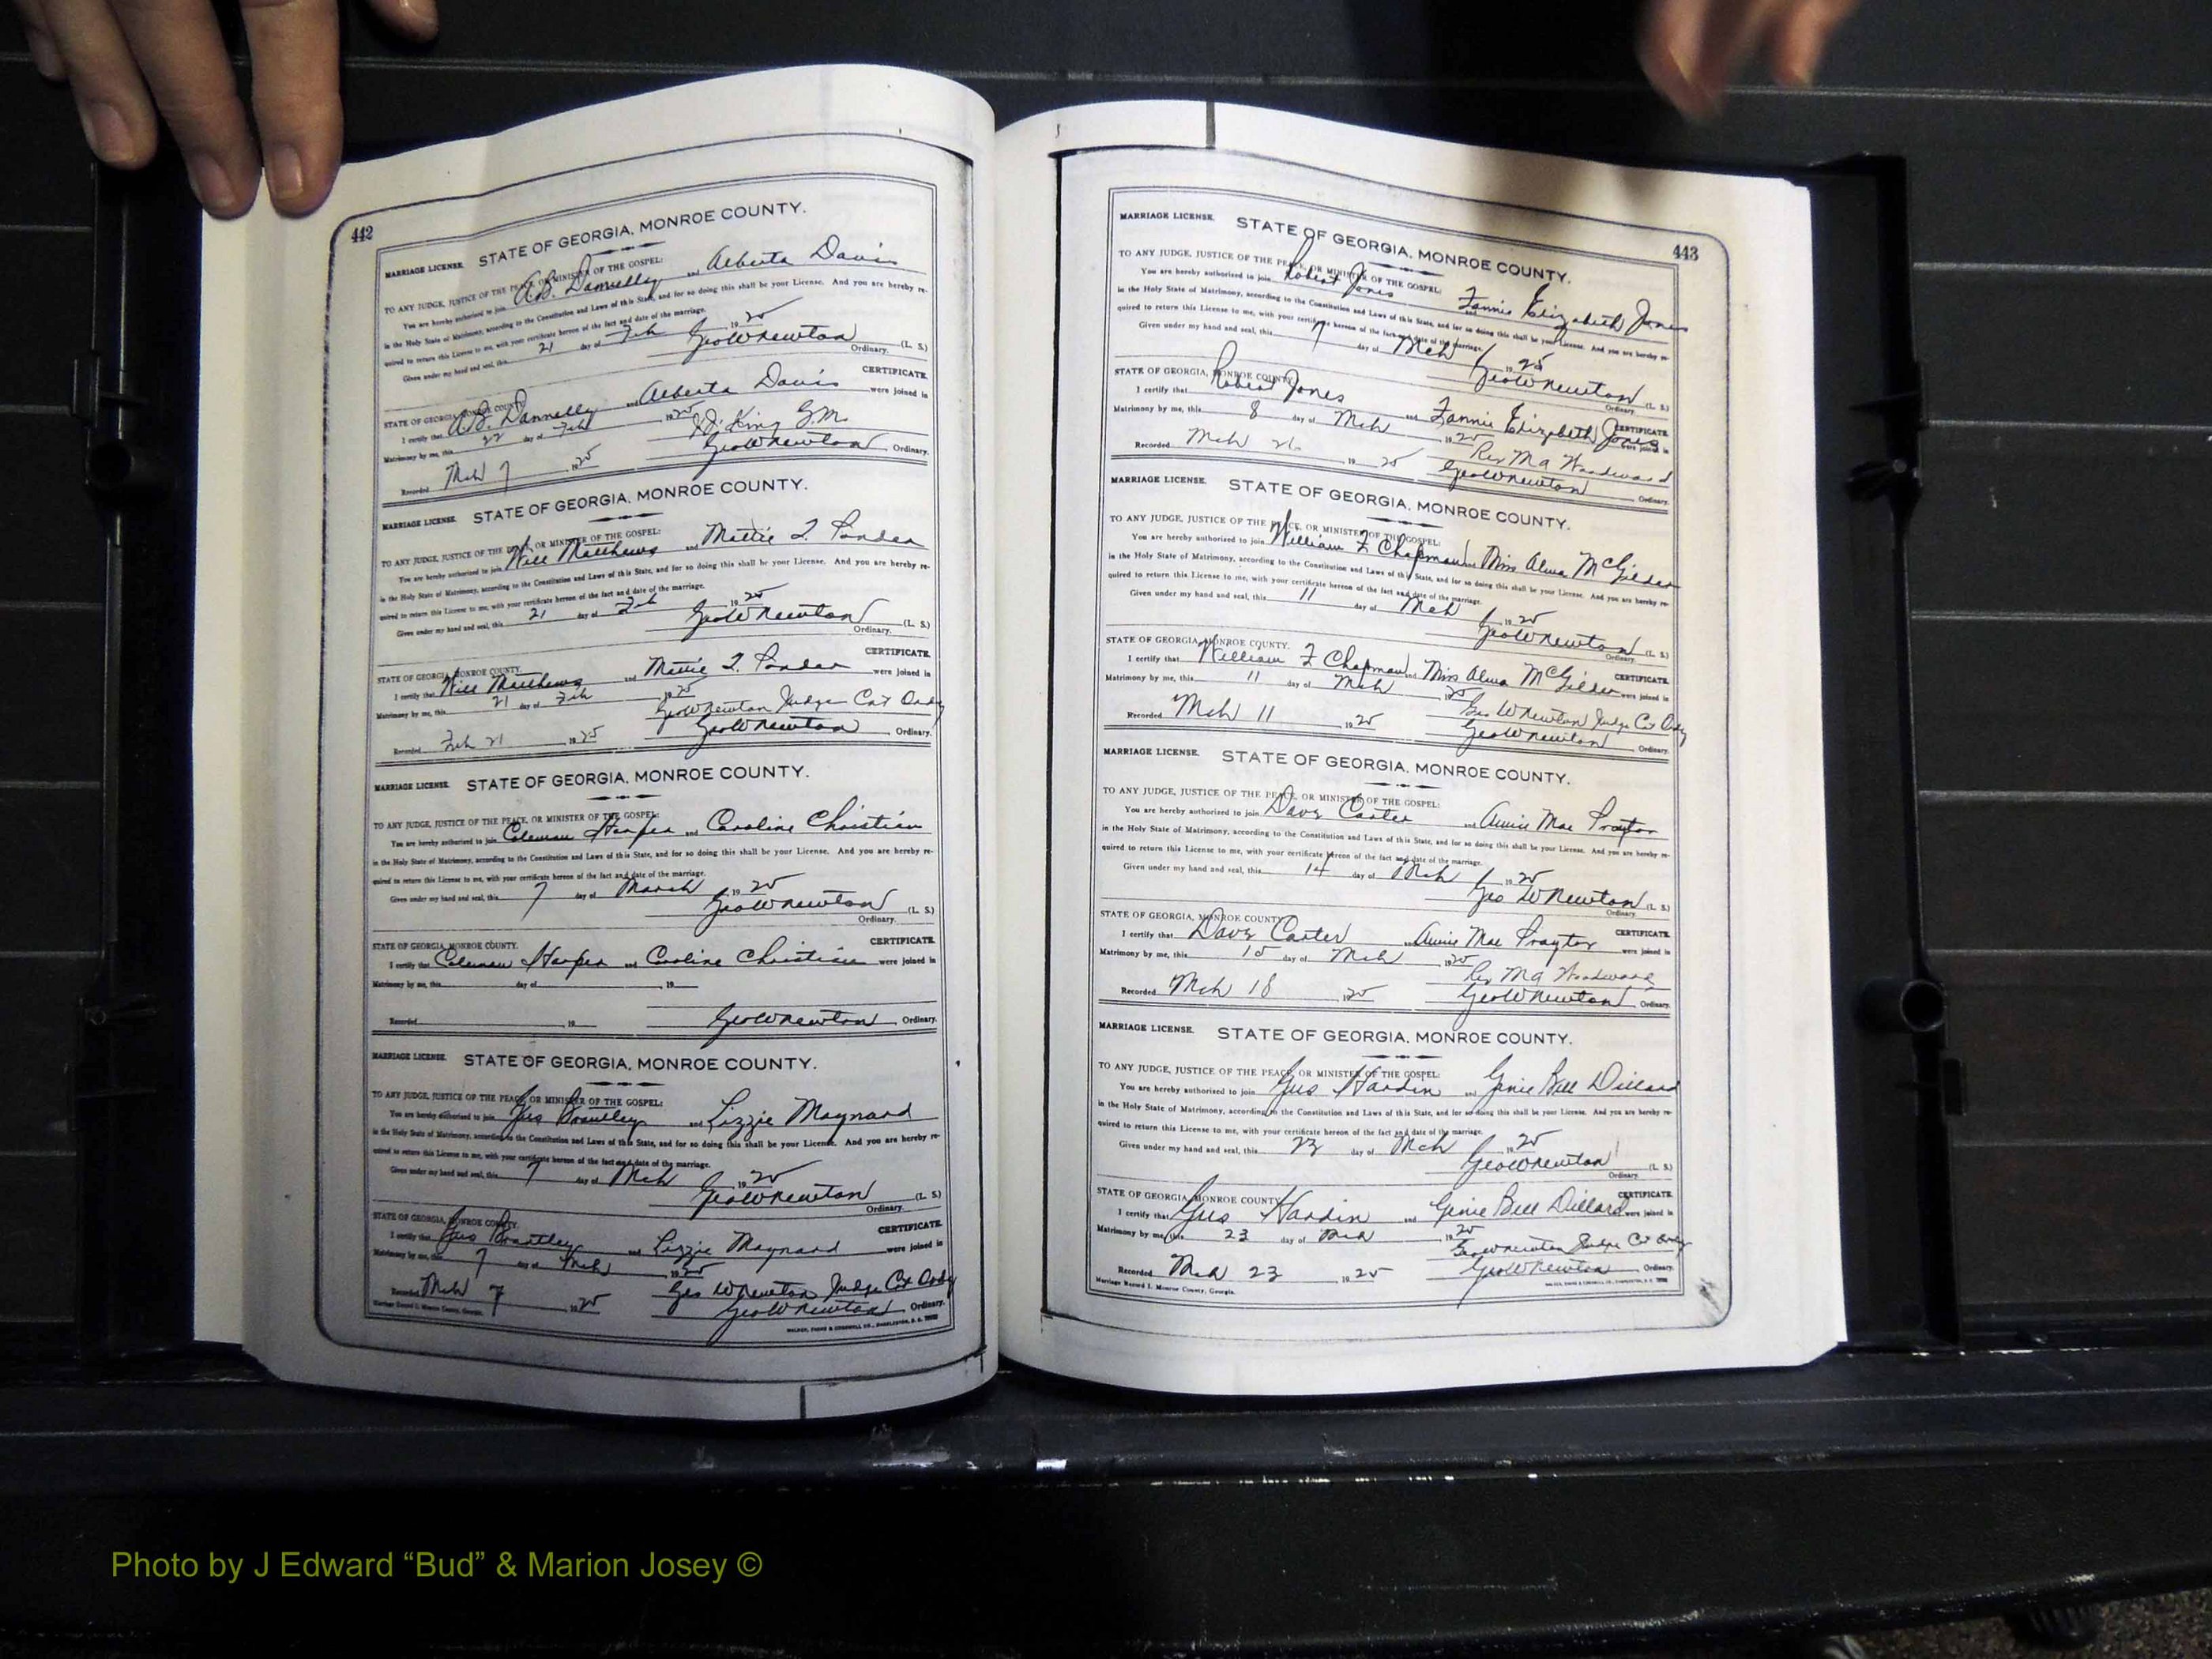 442
MARRIAGE LICENSE. STATE OF GEORGIA, MONROE COUNTY.
TO ANY JUDGE, JUSTICE OF THE PEACE, OR MINISTER OF THE GOSPEL:
You are hereby authorized to join A.B. Dannelly and Alberta Davis
in the Holy State of Matrimony, according to the Constitution and Laws of this State, and for so doing this shall be your License. And you are hereby re-
quired to return this License to me, with your certificate hereon of the fact and date of the marriage.
Given under my hand and seal, this 21 day of Feb 1925
Geo W Newton (L. S.)
Ordinary.
STATE OF GEORGIA, MONROE COUNTY. CERTIFICATE.
I certify that A.B. Dannelly and Alberta Davis were joined in
Matrimony by me, this 22 day of Feb 1925
J.J. King G.M.
Recorded Mch 7 1925 Geo W Newton Ordinary.
MARRIAGE LICENSE. STATE OF GEORGIA, MONROE COUNTY.
TO ANY JUDGE, JUSTICE OF THE PEACE, OR MINISTER OF THE GOSPEL:
You are hereby authorized to join Will Matthews and Mattie L. Ponder
in the Holy State of Matrimony, according to the Constitution and Laws of this State, and for so doing this shall be your License. And you are hereby re-
quired to return this License to me, with your certificate hereon of the fact and date of the marriage.
Given under my hand and seal, this 21 day of Feb 1925
Geo W Newton (L. S.)
Ordinary.
STATE OF GEORGIA, MONROE COUNTY. CERTIFICATE.
I certify that Will Matthews and Mattie L. Ponder were joined in
Matrimony by me, this 21 day of Feb 1925
Geo W Newton Judge Ct Ordy
Recorded Feb 21 1925 Geo W Newton Ordinary.
MARRIAGE LICENSE. STATE OF GEORGIA, MONROE COUNTY.
TO ANY JUDGE, JUSTICE OF THE PEACE, OR MINISTER OF THE GOSPEL:
You are hereby authorized to join Coleman Harper and Caroline Christian
in the Holy State of Matrimony, according to the Constitution and Laws of this State, and for so doing this shall be your License. And you are hereby re-
quired to return this License to me, with your certificate hereon of the fact and date of the marriage.
Given under my hand and seal, this 7 day of March 1925
Geo W Newton (L. S.)
Ordinary.
STATE OF GEORGIA, MONROE COUNTY. CERTIFICATE.
I certify that Coleman Harper and Caroline Christian were joined in
Matrimony by me, this day of , 19
Recorded , 19 Geo W Newton Ordinary.
MARRIAGE LICENSE. STATE OF GEORGIA, MONROE COUNTY.
TO ANY JUDGE, JUSTICE OF THE PEACE, OR MINISTER OF THE GOSPEL:
You are hereby authorized to join Gus Brantley and Lizzie Maynard
in the Holy State of Matrimony, according to the Constitution and Laws of this State, and for so doing this shall be your License. And you are hereby re-
quired to return this License to me, with your certificate hereon of the fact and date of the marriage.
Given under my hand and seal, this 7 day of Mch 1925
Geo W Newton (L. S.)
Ordinary.
STATE OF GEORGIA, MONROE COUNTY. CERTIFICATE.
I certify that Gus Brantley and Lizzie Maynard were joined in
Matrimony by me, this 7 day of Mch 1925
Geo W Newton Judge Ct Ordy
Recorded Mch 7 1925 Geo W Newton Ordinary.
443
MARRIAGE LICENSE. STATE OF GEORGIA, MONROE COUNTY.
TO ANY JUDGE, JUSTICE OF THE PEACE, OR MINISTER OF THE GOSPEL:
You are hereby authorized to join Robert Jones and Fannie Elizabeth Jones
in the Holy State of Matrimony, according to the Constitution and Laws of this State, and for so doing this shall be your License. And you are hereby re-
quired to return this License to me, with your certificate hereon of the fact and date of the marriage.
Given under my hand and seal, this 7 day of Mch 1925
Geo W Newton (L. S.)
Ordinary.
STATE OF GEORGIA, MONROE COUNTY. CERTIFICATE.
I certify that Robert Jones and Fannie Elizabeth Jones were joined in
Matrimony by me, this 8 day of Mch 1925
Rev M A Woodward
Recorded Mch 1925 Geo W Newton Ordinary.
MARRIAGE LICENSE. STATE OF GEORGIA, MONROE COUNTY.
TO ANY JUDGE, JUSTICE OF THE PEACE, OR MINISTER OF THE GOSPEL:
You are hereby authorized to join William F Chapman and Miss Alma McGilder
in the Holy State of Matrimony, according to the Constitution and Laws of this State, and for so doing this shall be your License. And you are hereby re-
quired to return this License to me, with your certificate hereon of the fact and date of the marriage.
Given under my hand and seal, this 11 day of Mch 1925
Geo W Newton (L. S.)
Ordinary.
STATE OF GEORGIA, MONROE COUNTY. CERTIFICATE.
I certify that William F Chapman and Miss Alma McGilder were joined in
Matrimony by me, this 11 day of Mch 1925
Geo W Newton Judge Ct Ordy
Recorded Mch 11 1925 Geo W Newton Ordinary.
MARRIAGE LICENSE. STATE OF GEORGIA, MONROE COUNTY.
TO ANY JUDGE, JUSTICE OF THE PEACE, OR MINISTER OF THE GOSPEL:
You are hereby authorized to join Dave Carter and Annie Mae Praytor
in the Holy State of Matrimony, according to the Constitution and Laws of this State, and for so doing this shall be your License. And you are hereby re-
quired to return this License to me, with your certificate hereon of the fact and date of the marriage.
Given under my hand and seal, this 14 day of Mch 1925
Geo W Newton (L. S.)
Ordinary.
STATE OF GEORGIA, MONROE COUNTY. CERTIFICATE.
I certify that Dave Carter and Annie Mae Praytor were joined in
Matrimony by me, this 15 day of Mch 1925
Rev M A Woodward
Recorded Mch 18 1925 Geo W Newton Ordinary.
MARRIAGE LICENSE. STATE OF GEORGIA, MONROE COUNTY.
TO ANY JUDGE, JUSTICE OF THE PEACE, OR MINISTER OF THE GOSPEL:
You are hereby authorized to join Gus Hardin and Genie Bell Dillard
in the Holy State of Matrimony, according to the Constitution and Laws of this State, and for so doing this shall be your License. And you are hereby re-
quired to return this License to me, with your certificate hereon of the fact and date of the marriage.
Given under my hand and seal, this 23 day of Mch 1925
Geo W Newton (L. S.)
Ordinary.
STATE OF GEORGIA, MONROE COUNTY. CERTIFICATE.
I certify that Gus Hardin and Genie Bell Dillard were joined in
Matrimony by me, this 23 day of Mch 1925
Geo W Newton Judge Ct Ordy
Recorded Mch 23 1925 Geo W Newton Ordinary.
Marriage Record I. Monroe County, Georgia.
Photo by J Edward “Bud” & Marion Josey ©